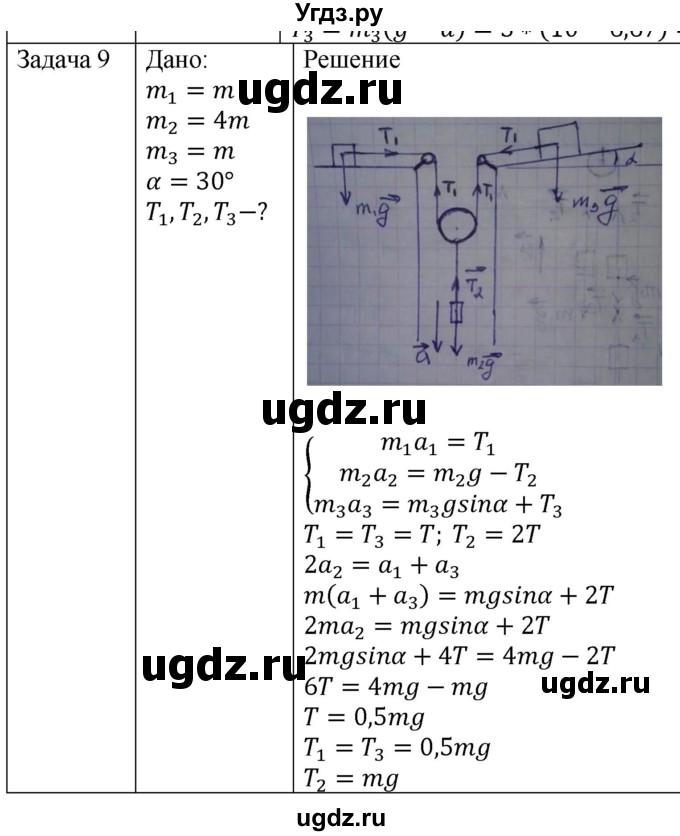 Угдз.ру
T₃ = m₃(g − a) = 3 * (10 −
Задача 9
Дано:
m₁ = m
m₂ = 4m
m₃ = m
α = 30°
T₁, T₂, T₃−?
Решение
T₁ T₁
α
T₁ T₁
m₁g⃗ m₃g⃗
T₂⃗
a⃗ m₂g⃗
m₁a₁ = T₁
m₂a₂ = m₂g − T₂
m₃a₃ = m₃gsinα + T₃
T₁ = T₃ = T; T₂ = 2T
2a₂ = a₁ + a₃
m(a₁ + a₃) = mgsinα + 2T
2ma₂ = mgsinα + 2T
2mgsinα + 4T = 4mg − 2T
6T = 4mg − mg
T = 0,5mg
T₁ = T₃ = 0,5mg
T₂ = mg
ugdz.ru
ugdz.ru
ugdz.ru
ugdz.ru
ugdz.ru